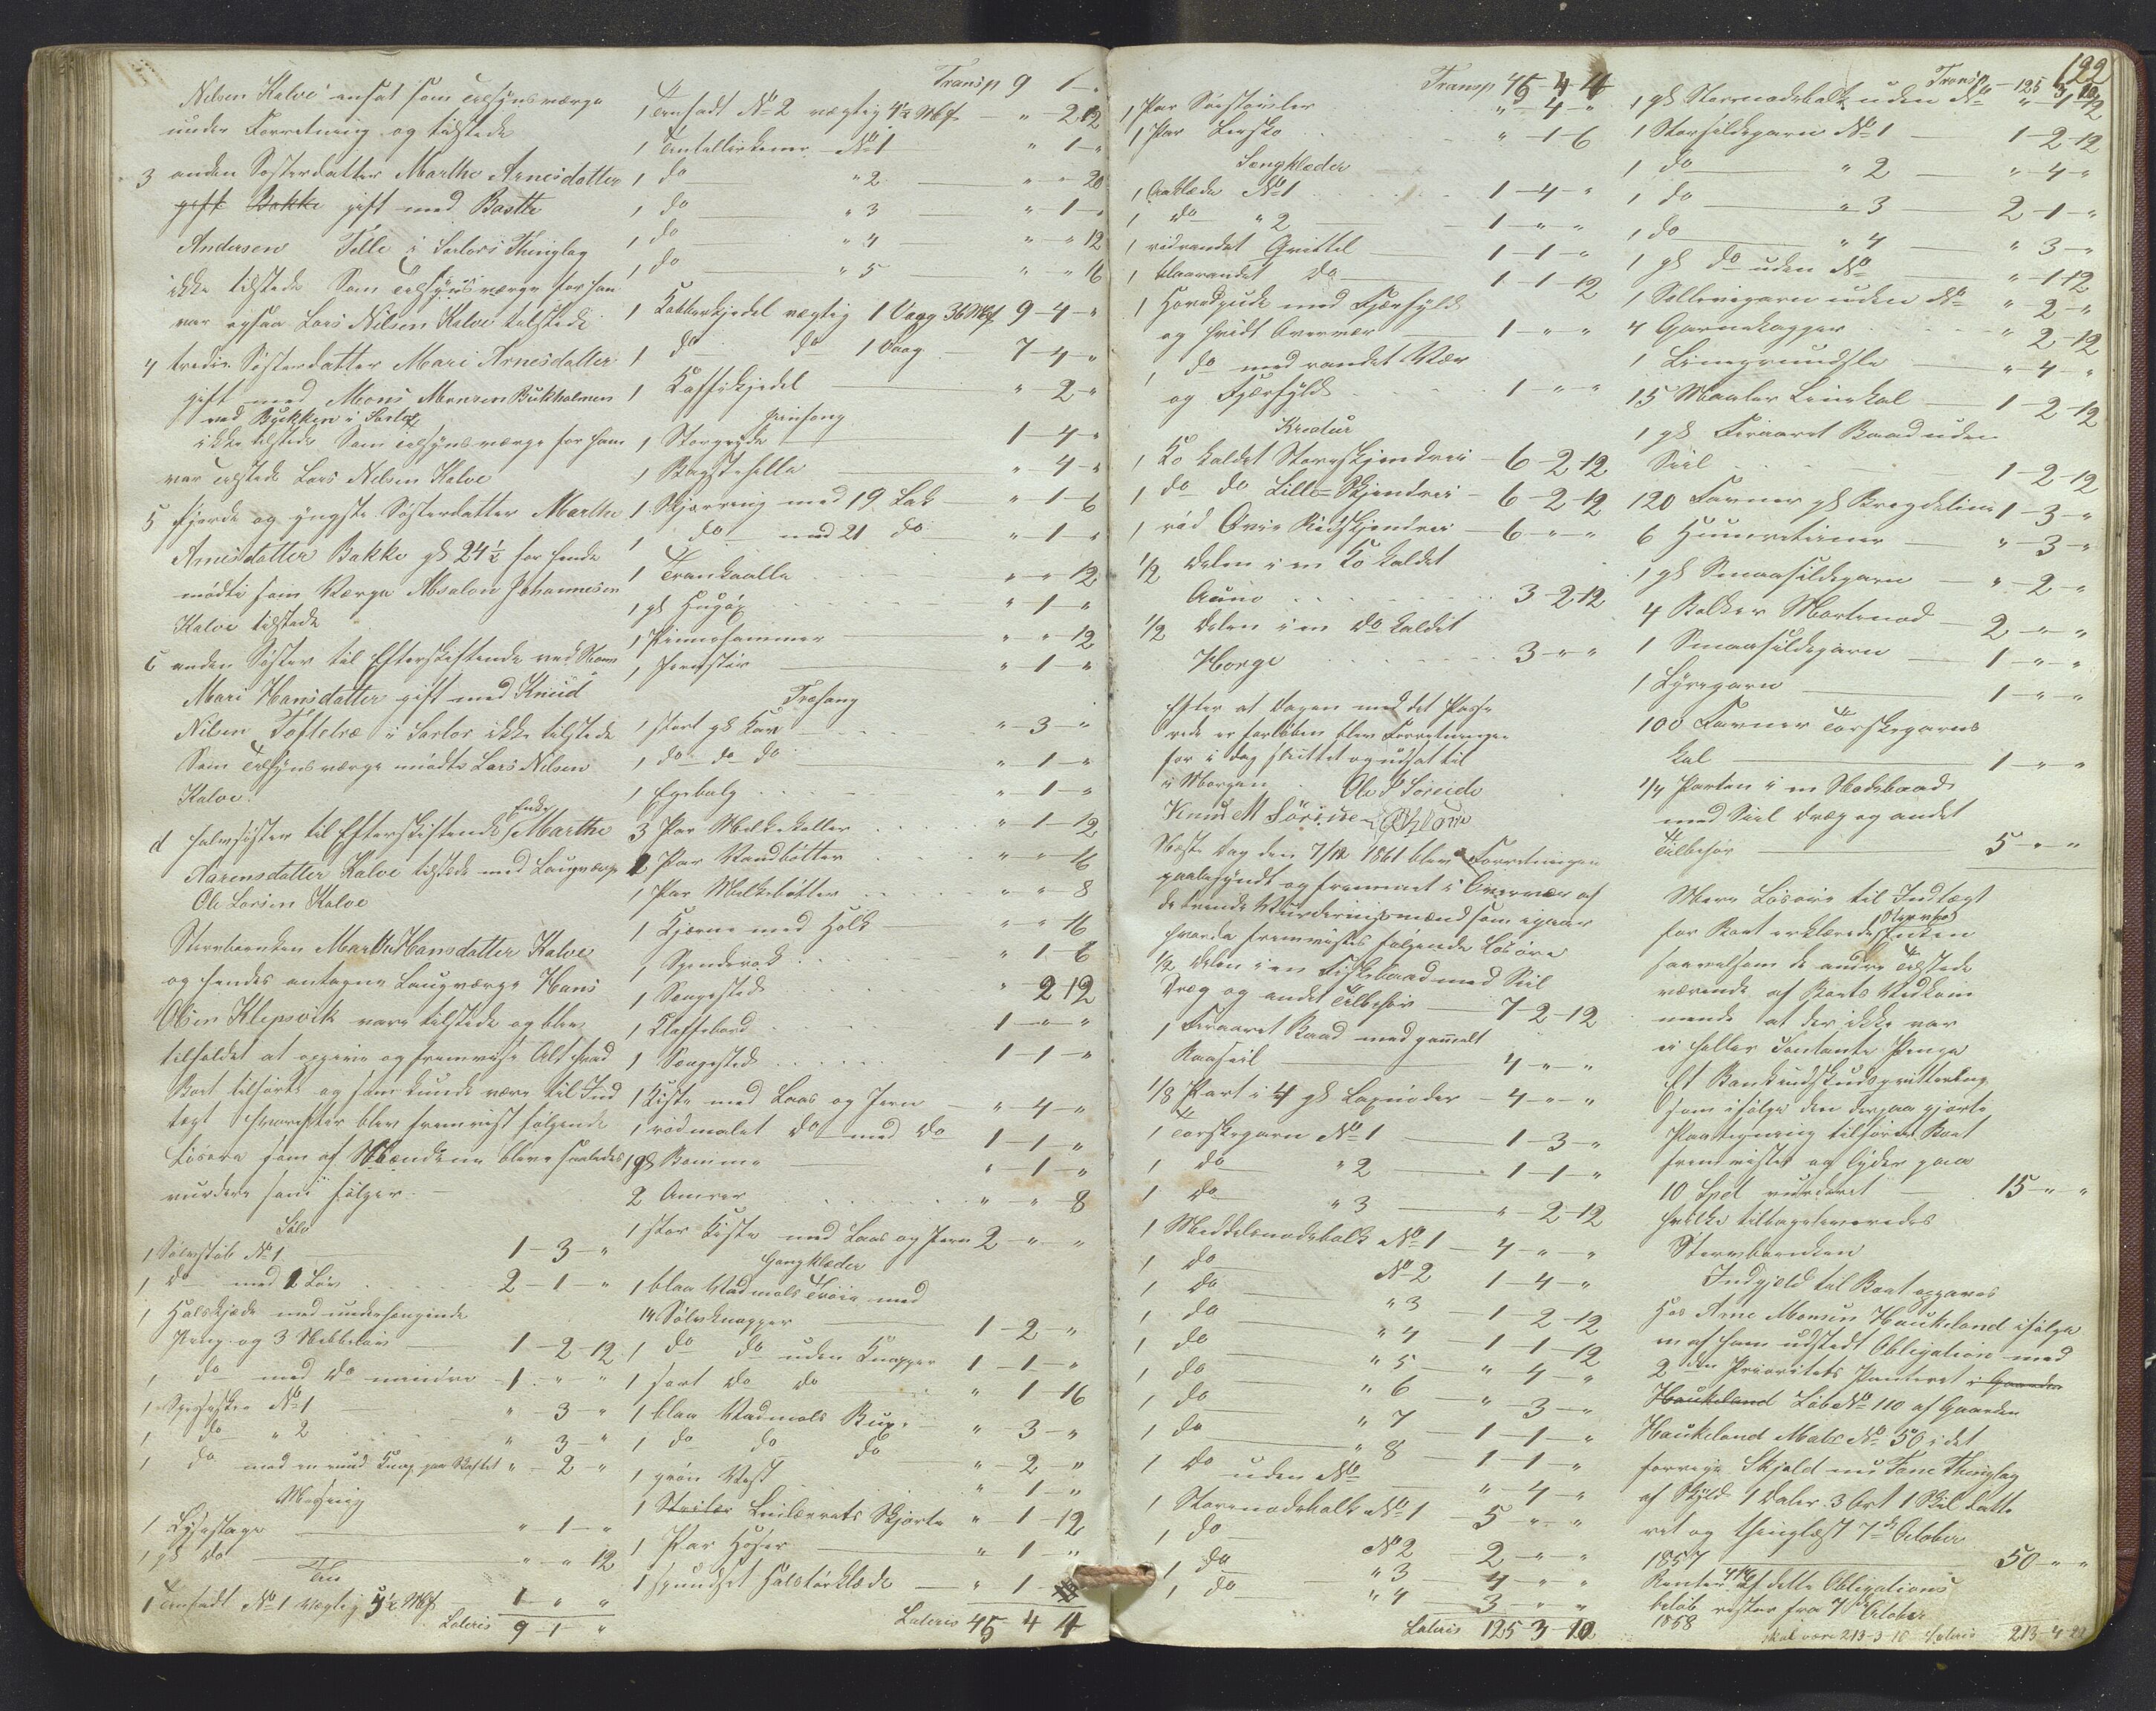 Nilsen Kalve ansat som Tilsynsværge
under Forretning og tilstede
3 anden Søsterdatter Marthe Arnesdatter
gift Bakke gift med Baste
Andersen Telle i Sartors Thinglag
ikke tilstede Som Tilsynsværge for han
var ogsaa Lars Nilsen Kalve tilstede
4 tredie Søsterdatter Mari Arnesdatter
gift med Mons Monsen Bukholmen
ved Bukken i Sartor
ikke tilstede Som Tilsynsværge for ham
var tilstede Lars Nilsen Kalve
5 fjerde og yngste Søsterdatter Marthe
Arnesdatter Bakke gl 24½ for hende
mødte som Værge Absalon Johannesen
Kalve tilstede
6 anden Søster til Efterskiftende ved Navn
Mari Hansdatter gift med Knud
Nilsen Toftetræ i Sartor ikke tilstede
Som Tilsynsværge mødte Lars Nilsen
Kalve.
d halvsøster til Efterskiftende Enke Marthe
Aarensdatter Kalve tilstede med Laugværge
Ole Larsen Kalve
Stervboenken Marthe Hansdatter Kalve
og hendes antagne Laugværge Hans
Olsen Klepsvik vare tilstede og blev
tilholdet at opgive og fremvise Alt hvad
Boet tilhørte og som kunde være til Ind
tægt hvorefter blev fremvist følgende
Løsøre som af Mændene bleve saaledes
vurdere som følger
Sølv
1 Sølvstøb No 1 1-3-"
1 do med 2 Løv 2-1-"
1 Halskjæde med underhængende
Peng og 3 1-2-12
1 do med do mindre 1-"-"
1 Speseskee No 1 "-3-"
1 do " 2 "-3-"
1 do med en rund Knap paa Skaftet "-2-"
Messing
1 Lysestage "-1-"
1 gl do "-"-12
Tin
1 Tinfadt No 1 vægtig 5½ Mk 1 " "
Lateris 9-1-"
Transp 9 1-"
1 Tinfadt No 2 vægtig 4½ Mk "-2-12
1 Tintallerkener No 1 "-1-"
1 do "2 "-"-20
1 do "3 "-1-"
1 do "4 "-"-12
1 do "5 "-"-16
1 Kobberkjedel vægtig 1 Vaag 36 Mk 9-4-"
1 do do 1 Vaag 7-4-"
1 Kaffekjedel "-2-"
Jernfang
1 Storgryde 1-4-"
1 Bagstehelle "-4-"
1 Skjærring med 19 Lek "-1-6
1 do med 21 do "-1-"
1 Trankaalle "-"-12
1 gl Hugøx "-1-"
1 Pennehammer "-"-12
1 Jernstør "-1-"
Træfang
1 stort gl Kar "-3-"
1 do do do "-1-"
1 Egebalg "-1-"
3 Par Melkekoller "-1-12
2 Par Vandbøtter "-"-16
1 Par Melkebøtter "-"-8
1 Kjærne med Holk "-"-16
1 Spinderok "-1-8
1 Sængested "-2-12
1 Klaffebord 1-"-"
1 Sængested 1-1-"
1 Kiste med Laas og Jern "-4-"
1 rødmalet do med do 1-1-"
1 gl Komme "-1-"
2 Amrer "-"-8
1 stor Kiste med Laas og Jern 2-"-"
Gangklæder
1 blaa Vadmals Trøie med
14 Sølvknapper 1-2-"
1 do do uden Knapper 1-1-"
1 sort do do "-1-16
1 blaa Vadmals Buxe "-3-"
1 do do do "-2-"
1 grøn Vest "-1-"
1 Strilær Linlærrets Skjorte "-1-12
1 Par Hoser "-1-"
1 spundset Halstørklæde "-1-
Lateris 45-4-4
Transp 45-4-4
1 Par Søestøvler "-4-"
1 Par Læsko "-1-6
Sengklæder
1 Aaklæde No 1 1-4-"
1 do " 2 1-"-"
1 vidrandet Grittel 1-1-"
1 blaarandet do 1-1-12
1 Hovedpude med Fjærfyld
og hvidt Overvær 1-"-"
1 do med randet Vær
og Fjærfyld 1-"-"
Kreatur
1 Ko kaldet Storeskjendrei 6-2-12
1 do do Lille-Skjendrei 6-2-12
1 rød Qvie Rødskjendrei 6-"-"
1/2 Delen i en Ko kaldet
3-2-12
1/2 Delen i en do kaldet
Horge 3-"-"
Efter at Dagen med det Passe
rede er forløben blev Forretningen
for i dag sluttet og udsat til
i Morgen. Ole P Søreide
Knud M Søreide
Næste Dag den 7/12 1861 blev Forretningen
paabegyndt og fremmet i Overvær af
de tvende Vurderingsmænd som igaar
hvorda fremvistes følgende Løsøre
1/2 Delen i en Fiskebaad med Seil
Dræg og andet Tilbehør 7-2-12
1 Feraaret Baad med gammelt
Raaseil 4-"-"
1/8 Part i 4 gl Laxnøder 4-"-"
1 Torskegarn No 1 1-3-"
1 do " 2 1-1-"
1 do " 3 "-2-12
1 Meddelsnodebalk No 1 4-"-"
1 do No 2 1-4-"
1 do " 3 1-2-12
1 do " 4 1-1-12
1 do " 5 "-4-"
1 do " 6 "-3-"
1 do " 7 1-1-"
1 do " 8 1-1-"
1 do uden No "-4-"
1 Storenodebalk No 1 5-"-"
1 do No 2 2-"-"
1 do " 3 4-"-"
1 do " 4 3-"-"
Lateris 125-3-10
122
Transp 125 3 10
1 gl Storenodebalk uden No "-1-12
1 Storsildegarn No 1 1-2-12
1 do " 2 "-4-"
1 do " 3 2-1-"
1 do " 4 "-3-"
1 gl do uden No "-1-12
1 Sellevigarn uden No "-2-"
4 Garnekagger "-2-12
1 Linegrundsle "-4-"
15 Maaler Linekal 1-2-12
1 gl Feraaret Baad uden
Seil 1-2-12
120 Favner gl Bregdeline 1-3-"
6 Hummertiner "-3-"
1 gl Smaasildegarn "-2-"
4 Balker Mortenod 2-"-"
1 Smaasildegarn 1-"-"
1 Lyregarn 1-"-"
100 Favner Torskegarns
kal 1-"-"
1/4 Parten i en Notebaad
med Seil Dræg og andet
Tilbehør 5-"-"
Mere Løsøre til Indtægt
for Boet erklærede Stervboe Enken
saavelsom de andre Tilstede
værende af Boets Vedkom
mende at der ikke var
ei heller Contante Penge
Et Bankindskudsqvittering
som ifølge den derpaa gjorte
Paategning tilhører Boet
fremvistes og lyder paa
10 Spd vurderet 15-"-"
hvilke tilbageleveredes
Stervboenken
Indgjeld til Boet opgaves
Hos Arne Monsen Haukeland ifølge
en af ham udstedt Obligation med
2den Prioritets Panteret i Gaarden
Haukeland Løb No 110 af Gaarden
Haukeland Matr No 50 i det
forrige Skjold nu Fane Thinglag
af Skyld 1 Daler 3 Ort 1 Skil date
ret og thinglæst 7de October
1857 50-"-"
Renter 4% af dette Obligations
beløb rester fra 7de October
1858
skal være 213-3-10 Lateris 213-4-22